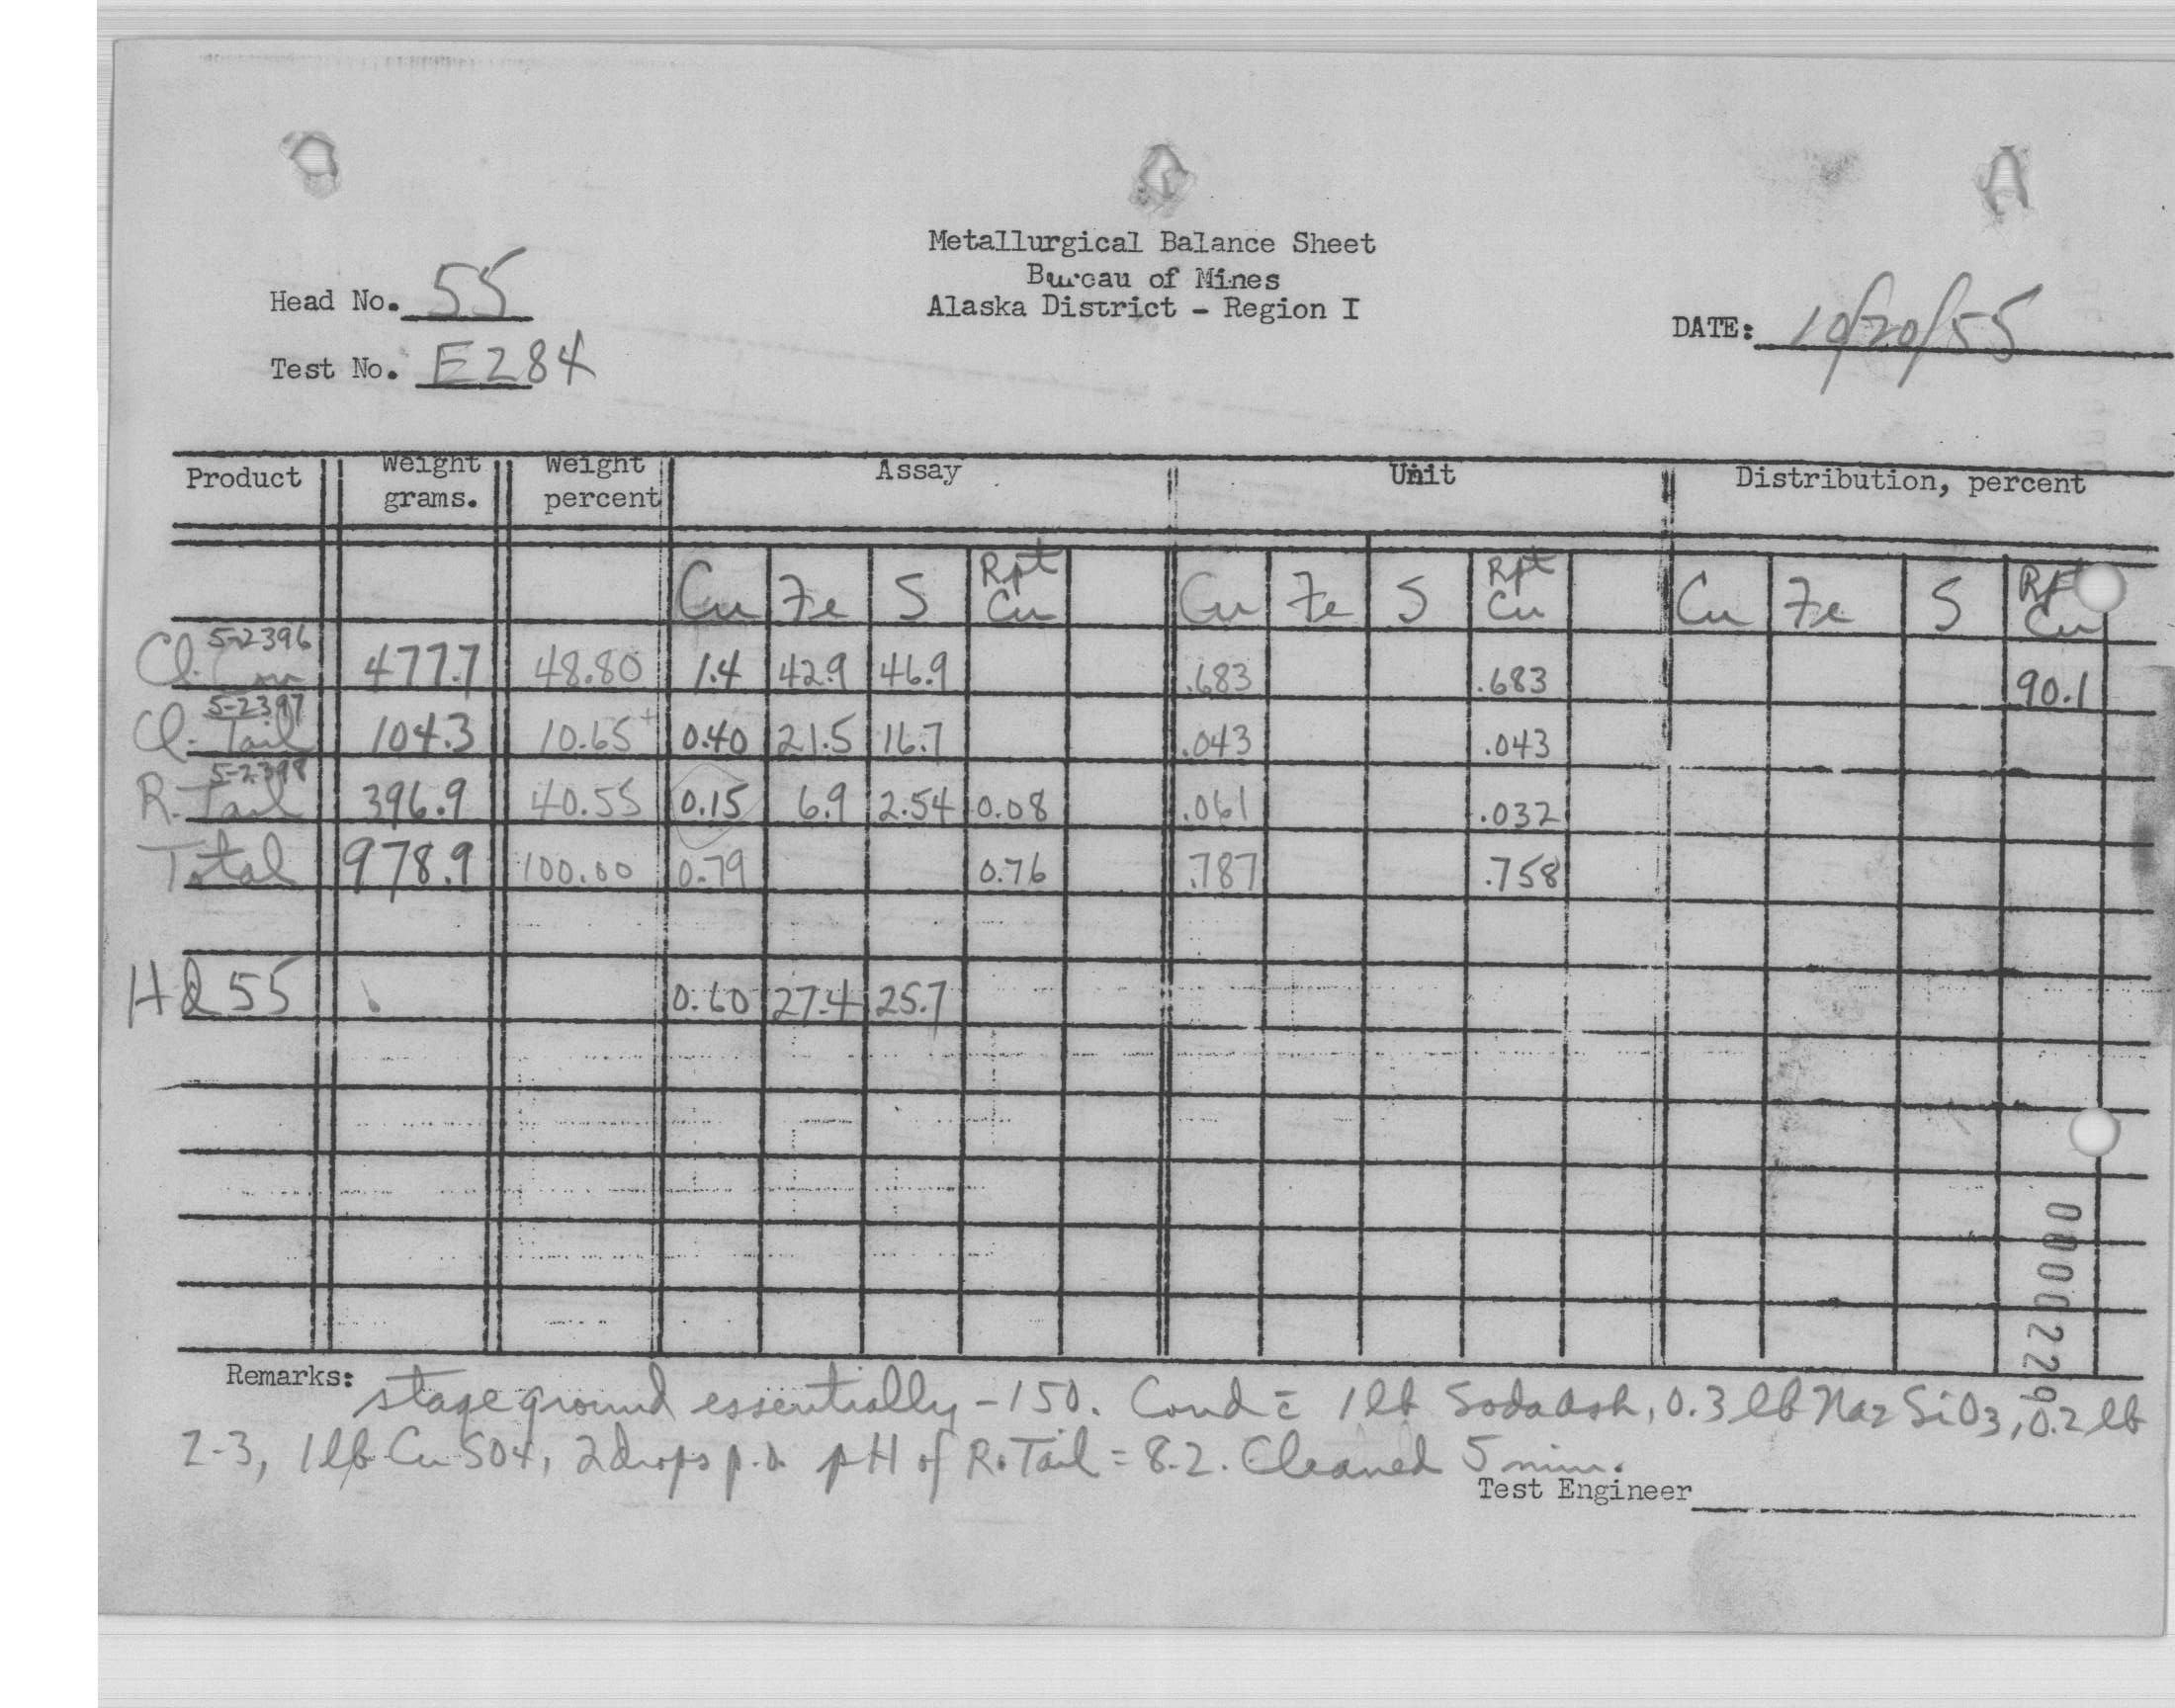 Metallurgical Balance Sheet
Bureau of Mines
Alaska District - Region I
Head No. 55
Test No. E284
DATE: 10/20/55
Product Weight grams. Weight percent Assay Unit Distribution, percent
Cu Fe S Rpt Cu Cu Fe S Rpt Cu Cu Fe S Rpt Cu
5-2396
Cl. Con 477.7 48.80 1.4 42.9 46.9 .683 .683 90.1
5-2397
Cl. Tail 104.3 10.65+ 0.40 21.5 16.7 .043 .043
5-2398
R. Tail 396.9 40.55 0.15 6.9 2.54 0.08 .061 .032
Total 978.9 100.00 0.79 0.76 .787 .758
Hd 55 0.60 27.4 25.7
Remarks: stage ground essentially -150. Cond = 1 lb Soda Ash, 0.3 lb Na2 SiO3, 0.2 lb
Z-3, 1 lb CuSO4, 2 drops p.o. pH of R. Tail = 8.2. Cleaned 5 min.
Test Engineer
0000229